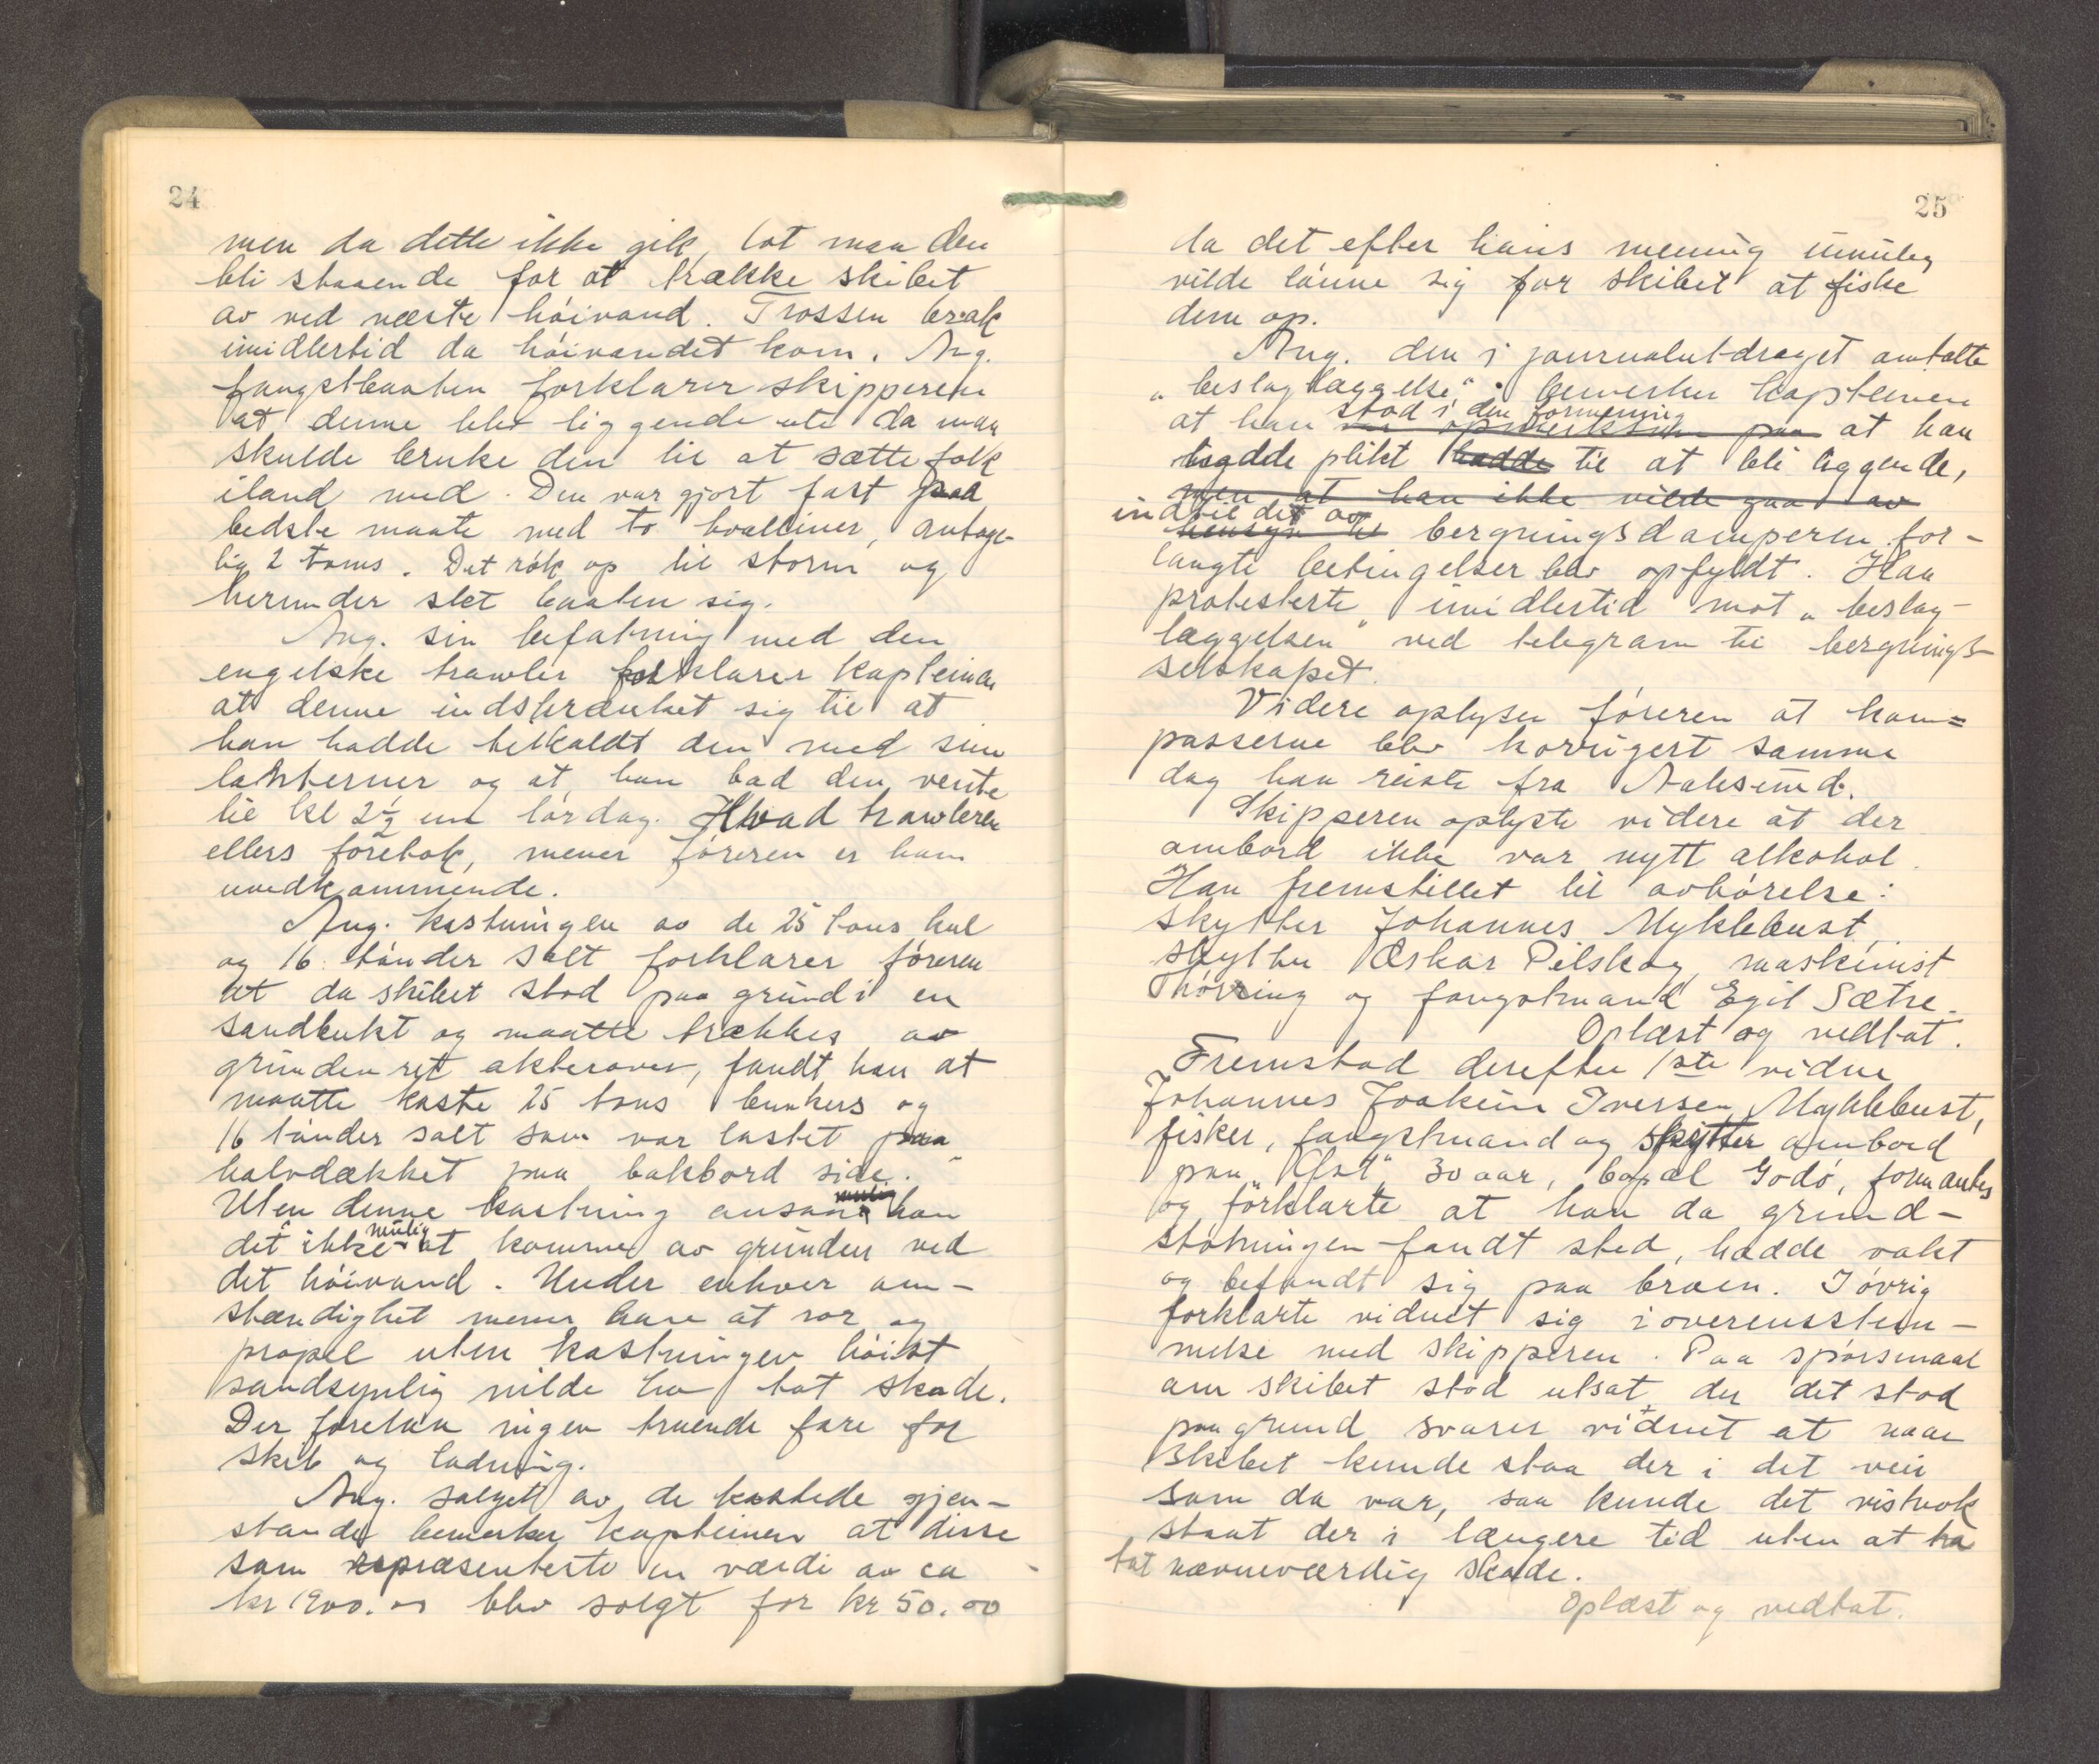 24
men da dette ikke gik, lot man den
bli staaende for at trække skibet
av ved næste høivand. Trossen brak
imidlertid da høivandet kom. Ang.
fangstbaaten forklarer skipperen
at denne blev liggende ute da man
skulde bruke den til at sætte folk
iland med. Den var gjort fast paa
bedste maate med to hvalliner, antage-
lig 2 toms. Det røk op til storm og
herunder slet baaten sig.
Ang. sin befatning med den
engelske trawler forklarer kapteinen
at denne indskrænket sig til at
han hadde tilkaldt den med sine
lanterner og at han bad den vente
til kl 2½ em lørdag. Hvad trawleren
ellers foretok, mener føreren er ham
uvedkommende.
Ang. kastningen av de 25 tons kul
og 16 tønder salt forklarer føreren
at da skibet stod paa grund i en
sandbukt og maatte trækkes av
grunden ret akterover, fandt han at
maatte kaste 25 tons bunkers og
16 tønder salt som var lastet paa
halvdækket paa bakbord side.
Uten denne kastning ansaa han
det ikke mulig at komme av grunden ved
det høivand. Under enhver om-
stændighet mener han at ror og
propel uten kastningen høist
sandsynlig vilde ha tat skade.
Der forelaa ingen truende fare for
skib og ladning.
Ang. salget av de kastede gjen-
stande bemerker kapteinen at disse
som repræsenterte en værdi av ca
kr 1900.00 blev solgt for kr 50.00
25
da det efter hans mening umulig
vilde lønne sig for skibet at fiske
dem op.
Ang. den i journalutdraget omtalte
"beslaglæggelse" bemerker kapteinen
at han stod i den formening at han
hadde plikt til at bli liggende,
men at han ikke vilde gaa av
indtil det av bergningsdamperen for-
langte betingelser blev opfyldt. Han
protesterte imidlertid mot "beslag-
læggelsen" ved telegram til bergnings-
selskapet.
Videre oplyser føreren at kom=
passerne blev korrigert samme
dag han reiste fra Aalesund.
Skipperen oplyste videre at der
ombord ikke var nytt alkohol.
Han fremstillet til avhørelse:
skytter Johannes Myklebust,
skytter Oskar Pilskog, maskinist
Thorsing og fangstmand Egil Sætre.
Oplæst og vedtat.
Fremstod derefter 1ste vidne
Johannes Joakim Iversen Myklebust,
fisker, fangstmand og skytter ombord
paa 30 aar, bopæl Godø, formantes
og forklarte at han da grund-
støtningen fandt sted, hadde vakt
og befandt sig paa broen. Iøvrig
forklarte vidnet sig i overensstem-
melse med skipperen. Paa spørsmaal
om skibet stod utsat der det stod
paa grund svarer vidnet at naar
skibet kunde staa der i det veir
som da var, saa kunde det nok
staat der i længere tid uten at ha
tat nævneværdig skade.
Oplæst og vedtat.